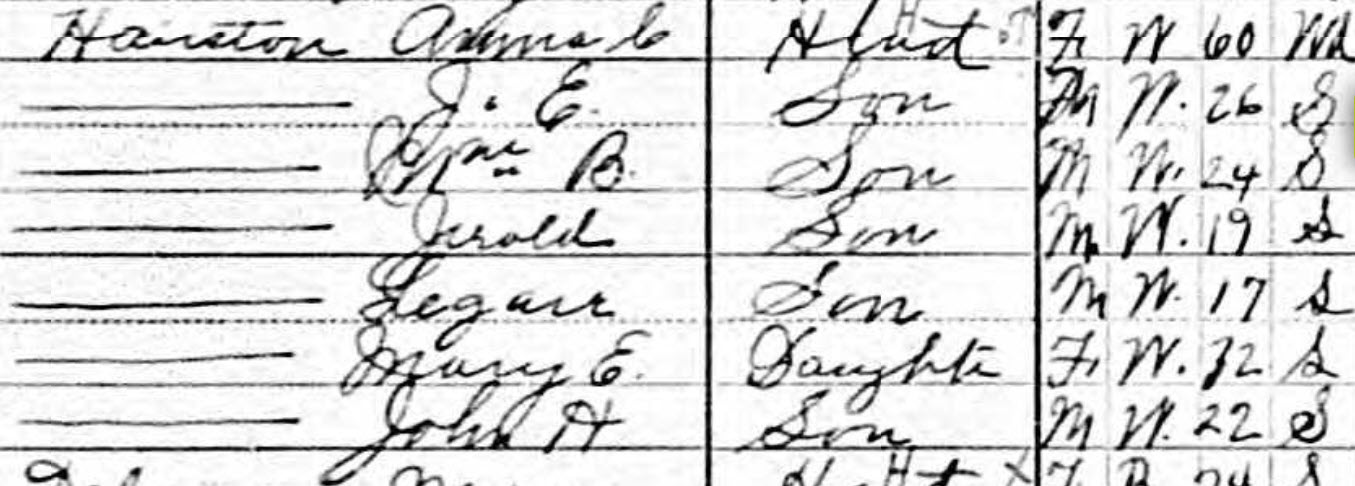 Hairston Anna C Head F W 60 Wd
J. E. Son M W. 26 S
Wm B. Son M W. 24 S
Jerold Son M W. 19 S
Legare Son M W. 17 S
Mary E. Daughte F W. 32 S
John H Son M W. 22 S
H F B 24 S